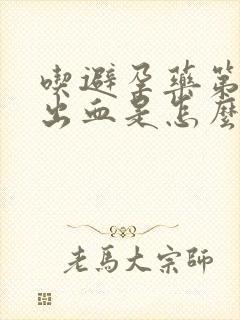 喫避孕藥第
出血是怎麼
老馬大宗師